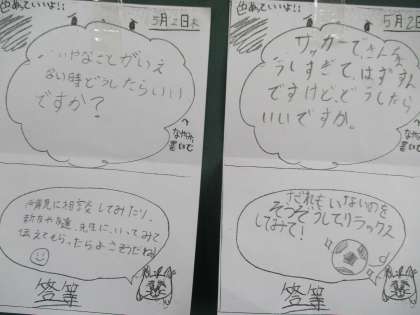 色ぬっていいよ!!
5月2日
いやなことがいえ
ない時どうしたらいい
ですか?
なやみ
書いて
に相談してみたり、
友達、先生に、いってみて
伝えてもらったらよさそうだね!
答等
色ぬっていいよ!!
5月2日
サッカーで、きんち
ょうしすぎて、はずすん
ですけど、どうしたら
いいですか。
なやみ
書いて
だれもいないのを
そうぞうしてリラックス
してみて!
答等